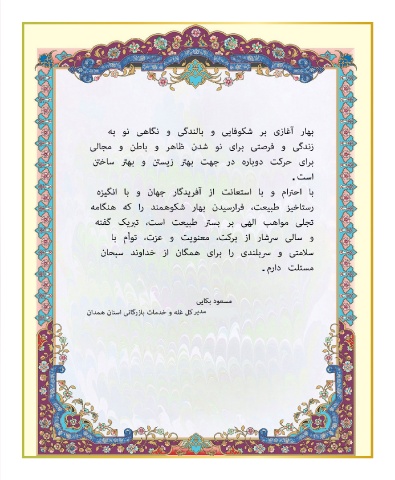 بهار آغازی بر شکوفایی و بالندگی و نگاهی نو به
زندگی و فرصتی برای نو شدن ظاهر و باطن و مجالی
برای حرکت دوباره در جهت بهتر زیستن و بهتر ساختن
است .
با احترام و با استعانت از آفریدگار جهان و با انگیزه
رستاخیز طبیعت، فرارسیدن بهار شکوهمند را که هنگامه
تجلی مواهب الهی بر بستر طبیعت است، تبریک گفته
و سالی سرشار از برکت، معنویت و عزت، توأم با
سلامتی و سربلندی را برای همگان از خداوند سبحان
مسئلت دارم .
مسعود بکایی
مدیر کل غله و خدمات بازرگانی استان همدان